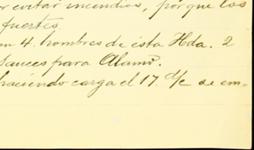 r evitar incendios, porque los
fuertes.
n 4. hombres de esta Hda. 2
sauces para Alamo.
haciendo carga el 17. %c se em-